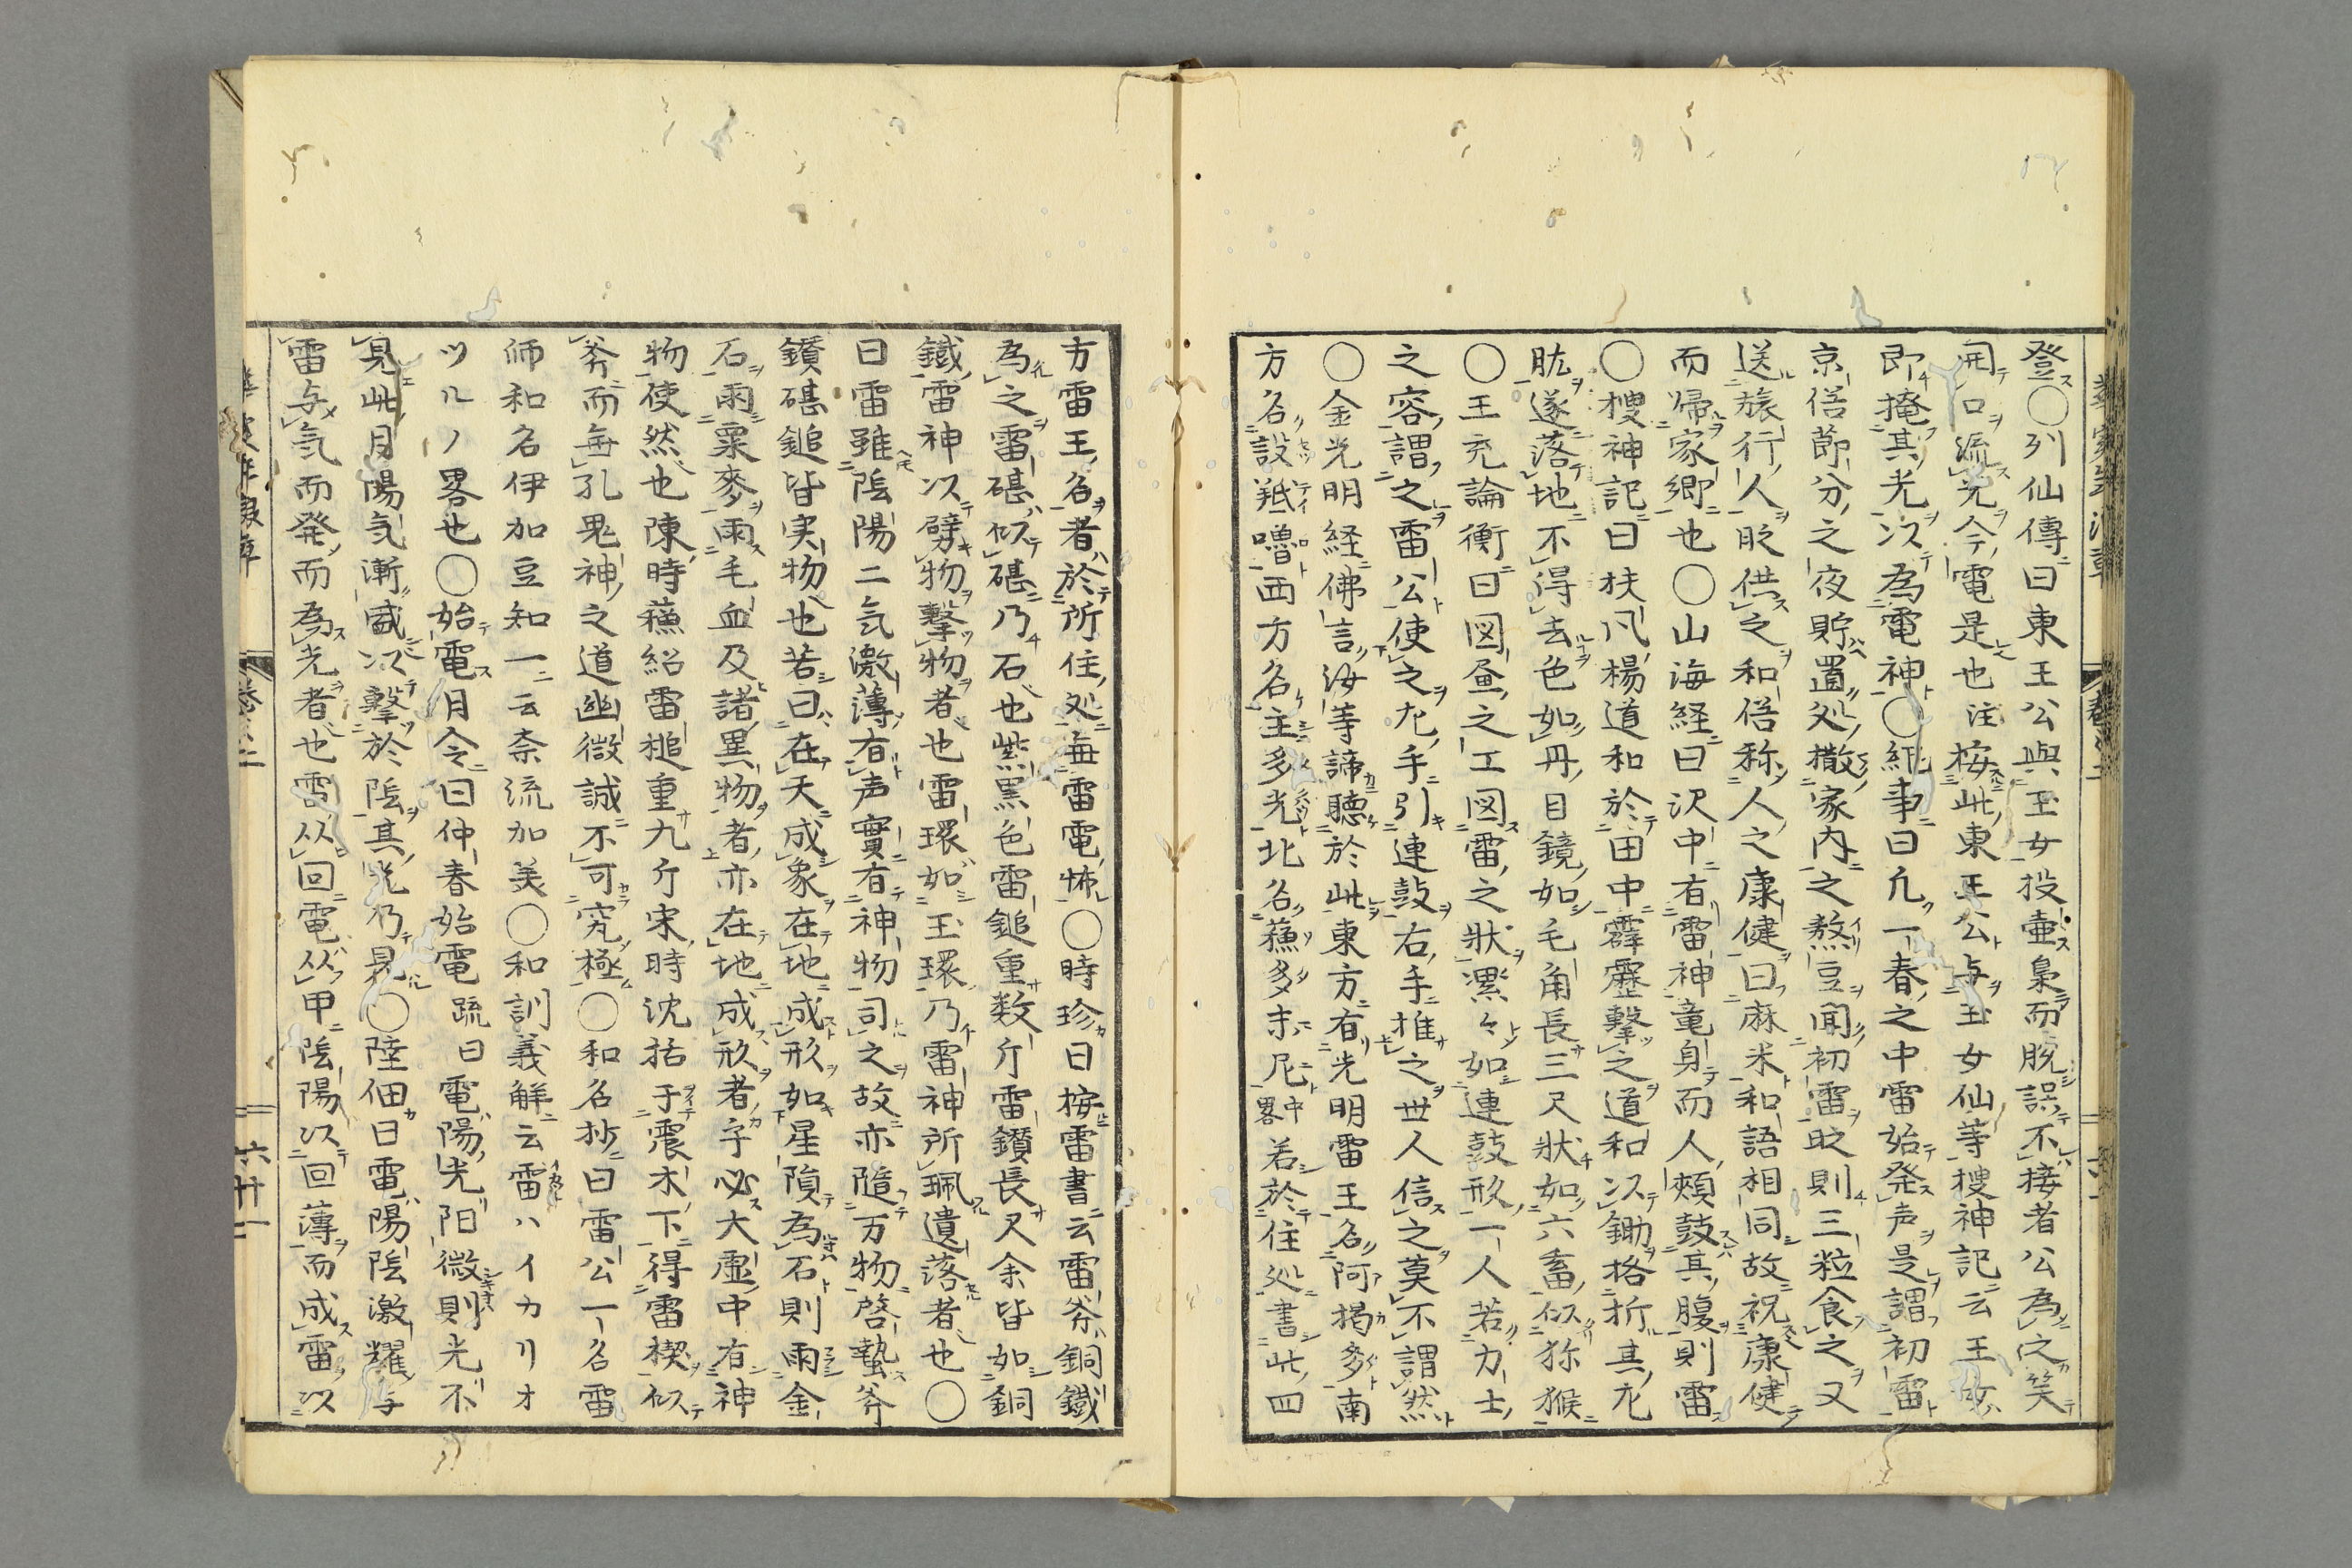 登◯列仙傳曰東王公與玉女投壷梟而脱誤不接者公為之笑
開口流光今電是也注按此東王公与玉女仙等捜神記云王女
即掩其光以為電神◯紀事曰凢一春之中雷始発声是謂初雷
京俗節分之夜貯置処撒家内之熬豆聞初雷時則三粒食之又
送旅行人時供之和俗称人之康健曰麻米和語相同故祝康健
而帰家郷也◯山海経曰沢中有雷神竜身而人頰鼓其腹則雷
◯捜神記曰扶風楊道和於田中霹靂撃之道和以鋤格折其左
肱遂落地不得去色如丹目鏡如毛角長三尺状如六畜似狝猴
◯王充論衡曰図画之工図雷之状漯々如連鼓形一人若力士
之容謂之雷公使之左手引連鼓右手推之世人信之莫不謂然
◯金光明経佛言汝等諦聽於此東方有光明雷王名阿掲多南
方名設羝嚕西方名主多光北名蘓多末尼中畧若於住処書此四
方雷王名者於所住処毎雷電怖◯時珍曰按雷書云雷斧銅鐵
為之雷碪似碪乃石也紫黒色雷鎚重数斤雷鑚長尺余皆如銅
鐵雷神以劈物撃物者也雷環如玉環乃雷神所珮遺落者也◯
曰雷雖陰陽二気激薄有声實有神物司之故亦隨万物啓蟄斧
鑚碪鎚皆実物也若曰在天成象在地成形如星隕為石則雨金
石雨粟麥雨毛血及諸異物者亦在地成形者乎必大虚中有神
物使然也陳時蘓紹雷槌重九斤宋時沈括于震木下得雷楔似
斧而無孔鬼神之道幽微誠不可究極◯和名抄曰雷公一名雷
師和名伊加豆知一云奈流加美◯和訓義解云雷ハイカリオ
ツルノ畧也◯始電月令曰仲春始電疏曰電陽光陽微則光不
見此月陽気漸盛以撃於陰其光乃見◯陸佃曰電陽陰激耀与
雷与気而発而為光者也雷从回電从甲陰陽以回薄而成雷以